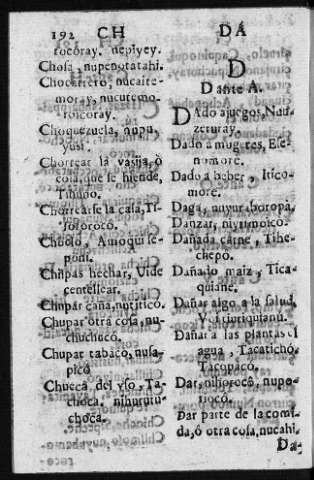 192 CH DA
rocoray. nepiyey.
Chosa, nupenotatahi.
Chocarrero, nucaite-
moray, nucutemo-
roicoray.
Choquezuela, nupu,
yusi.
Chorrear la vasija, ò
cosa, que se hiende,
Tihuno.
Chorrearse la casa, Ti-
sosoroco.
Chuolo, Amoqui se-
poni.
Chispas hechar, Vide
centellear.
Chupar caña, nutitico.
Chupar otra cosa, nu-
chuchuco.
Chupar tabaco, nusa-
pico
Chueca del vso, Ta-
choca. nihurutu-
choca.
D
Dante A.
DAdo a juegos, Nui-
zeruray.
Dado a mugeres, Ese-
nomore.
Dado a beber, Itico-
more.
Daga, nuyuraboropa.
Danzar, niyirinoico.
Dañada carne, Tihe-
chepo.
Dañado maiz, Tica-
quiane.
Dañar algo a la salud,
V.
Dañar a las plantas el
agua, Tacatichò.
Tacopacò.
Dar, nupo-
riocò.
Dar parte de la comi-
da, ó otra cosa, nucahi.
Da-